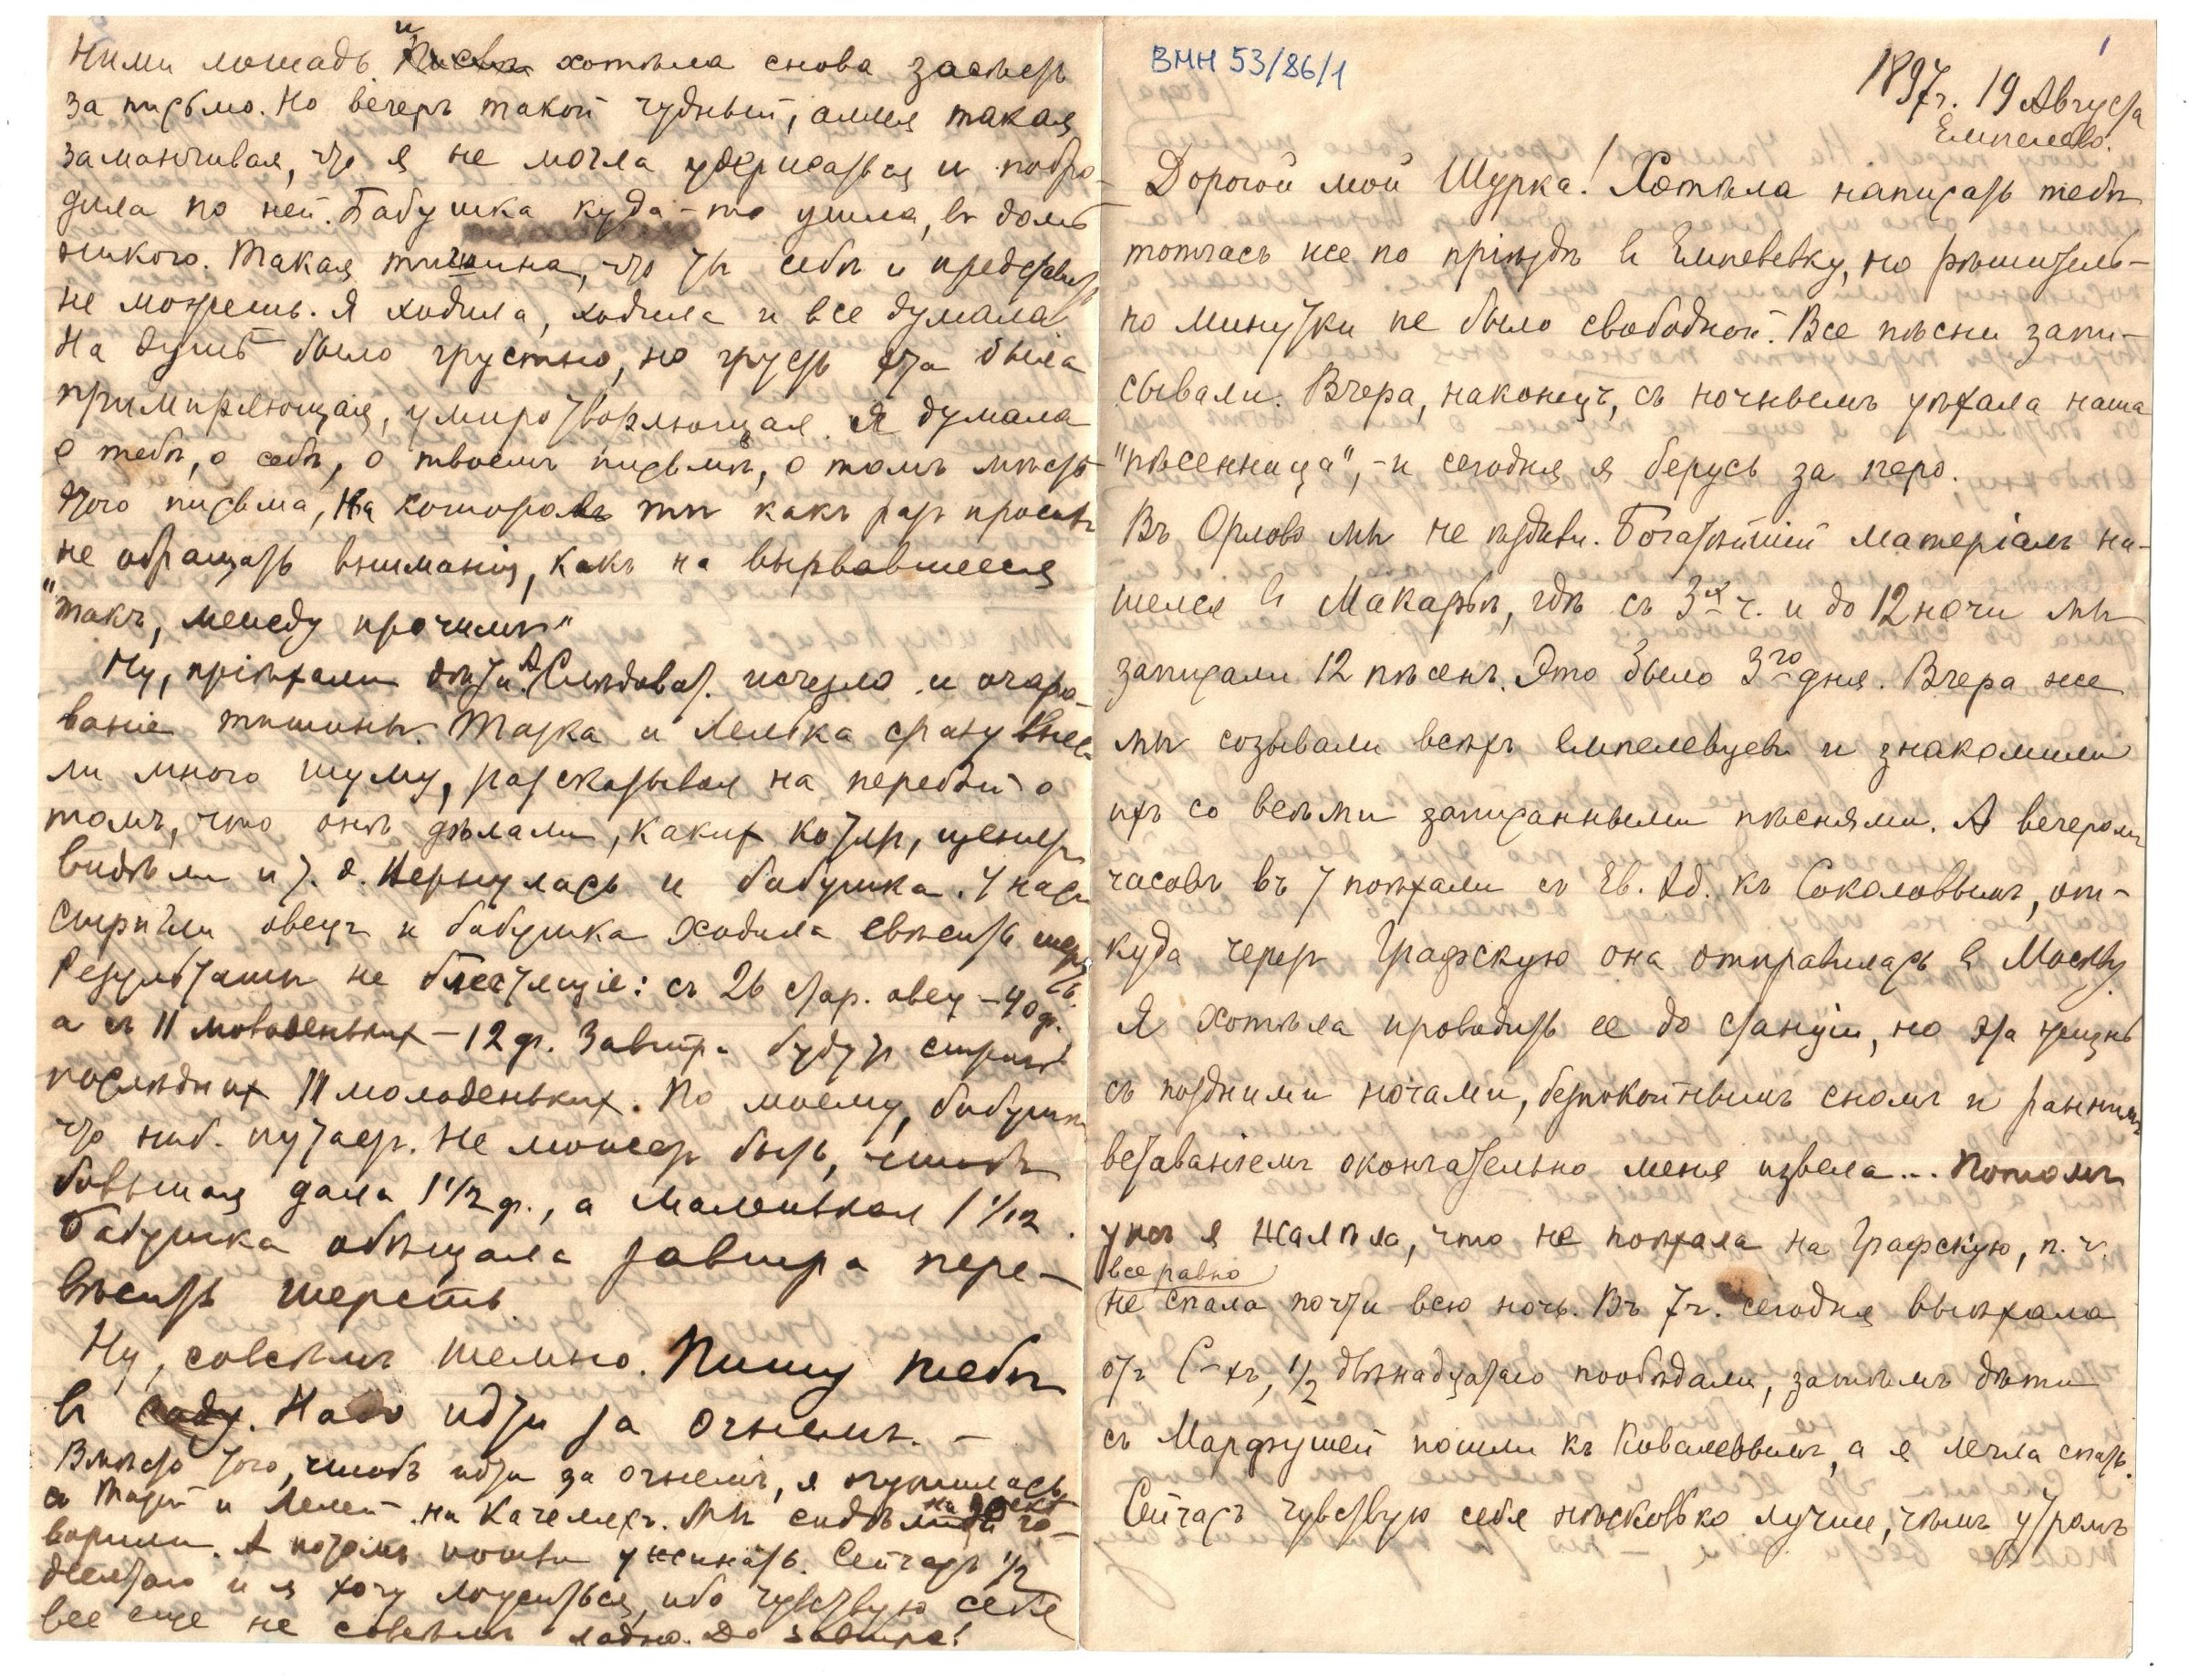 ВМН 53/86/1
1
1897г. 19 Августа
Емпелево.
Дорогой мой Шурка! Хотѣла написать тебѣ
тотчасъ же по пріѣздѣ въ Емпелевку, но рѣшитель-
но минутки не было свободной. Все пѣсни запи-
сывали. Вчера, наконецъ, съ ночнымъ уѣхала наша
"пѣсенница",- и сегодня я берусь за перо.
Въ Орлово мы не ѣздили. Богатѣйшій матеріалъ на-
шелся въ Макарьѣ, гдѣ съ 3хъ ч. и до 12 ночи мы
записали 12 пѣсенъ. Это было 3го дня. Вчера же
мы созывали всѣхъ емпелевцевъ и знакомили
ихъ со всѣми записанными пѣснями. А вечеромъ
часовъ въ 7 поѣхали съ Ев. Ад. къ Соколовымъ, от-
куда черезъ Графскую она отправилась въ Москву.
Я хотѣла проводить ее до станціи, но эта жизнь
съ поздними ночами, безпокойнымъ сномъ и раннимъ
вставаніемъ окончательно меня извела... Потомъ
ужъ я жалѣла, что не поѣхала на Графскую, п. ч.
все равно
не спала почти всю ночь. Въ 7 ч. сегодня выѣхала
отъ С-хъ, 1/2 двѣнадцатаго пообѣдали, затѣмъ дѣти
съ Марфушей пошли къ Ковалевымъ, а я легла спать.
Сейчасъ чувствую себя нѣсколько лучше, чѣмъ утромъ
ними лошадь и хотѣла снова засѣсть
за письмо. Но вечеръ такой чудный, аллея такая
заманчивая, что я не могла удержаться и побро-
дила по ней. Бабушка куда-то ушла, въ домѣ
никого. Такая тишина, что ты себѣ и представить
не можешь. Я ходила, ходила и все думала
На душѣ было грустно, но грусть эта была
примиряющая, умиротворяющая. Я думала
о тебѣ, о себѣ, о твоемъ письмѣ, о томъ мѣстѣ
этого письма, на которое ты какъ разъ просишь
не обращать вниманія, какъ на вырвавшееся
"такъ, между прочимъ"
Ну, пріѣхали дѣти. А Слѣдоват. исчезло и очаро-
ваніе тишины. Таска и Лелька сразу внес-
ли много шуму, разсказывая на перебой о
томъ, что онѣ дѣлали, какихъ козъ, щенятъ
видѣли и т. д. Вернулась и бабушка. У насъ
стригли овецъ и бабушка ходила свѣсить шерсть.
Результаты не блестящіе: съ 26 стар. овец - 40 ф.
а съ 11 молоденькихъ - 12 ф. Завтра будутъ стричь
послѣднихъ молоденькихъ. По моему, бабушка
что ниб. путаетъ. Не можетъ быть, чтобъ
большая дала 1 1/2 ф., а маленькая 1 1/12.
Бабушка обѣщала завтра пере-
вѣсить шерсть
Ну, совсѣмъ темно. Пишу тебѣ
въ саду. Надо идти за огнемъ. -
Вмѣсто того, чтобъ идти за огнемъ, я очутилась
съ Тасей и Лелей на качеляхъ. Мы сидѣли и го-
ворили. А потомъ пошли ужинать. Сейчасъ 1/2
десятаго и я хочу ложиться, ибо чувствую себя
все еще не совсѣмъ ладно. До завтра!